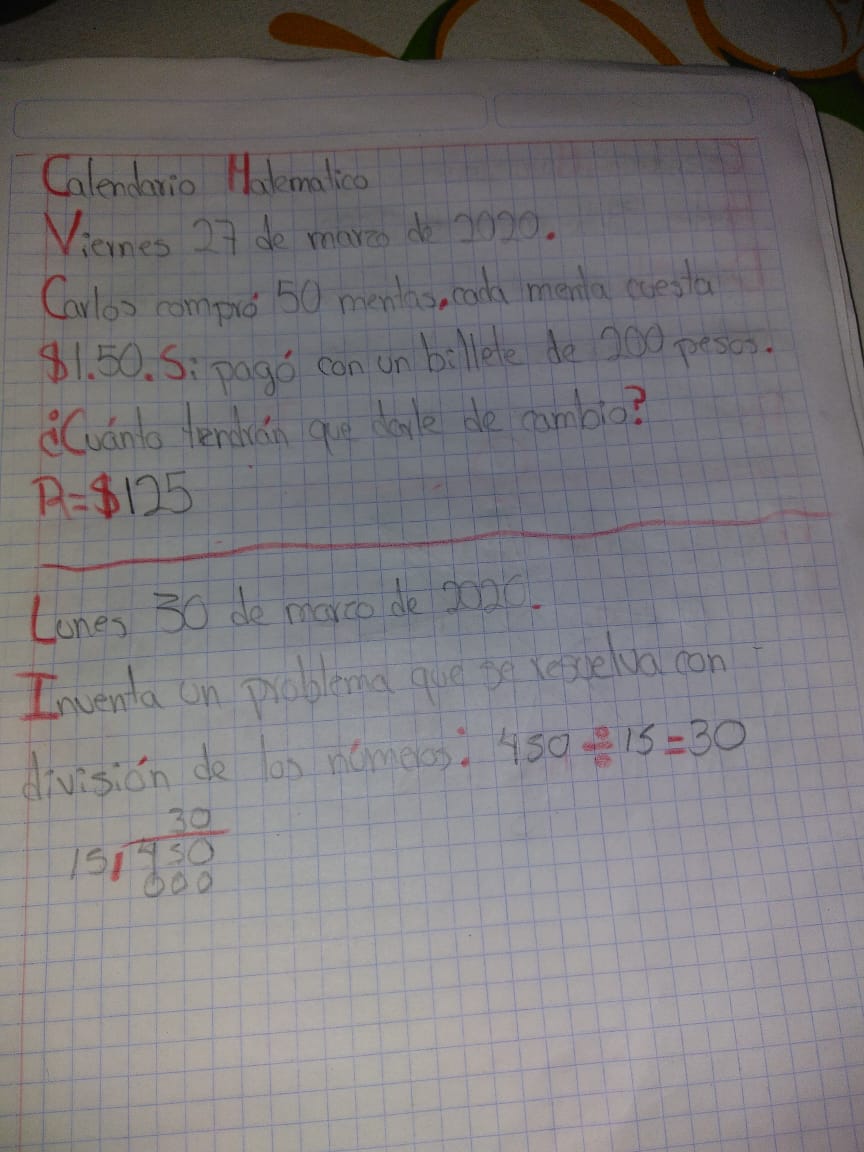 Calendario Matematico
Viernes 27 de marzo de 2020.
Carlos compró 50 mentas, cada menta cuesta
$1.50. Si pagó con un billete de 200 pesos.
¿Cuánto tendrán que darle de cambio?
R=$125
Lunes 30 de marzo de 2020.
Inventa un problema que se resuelva con
división de los números: 450 ÷ 15 = 30
30
15 450
000